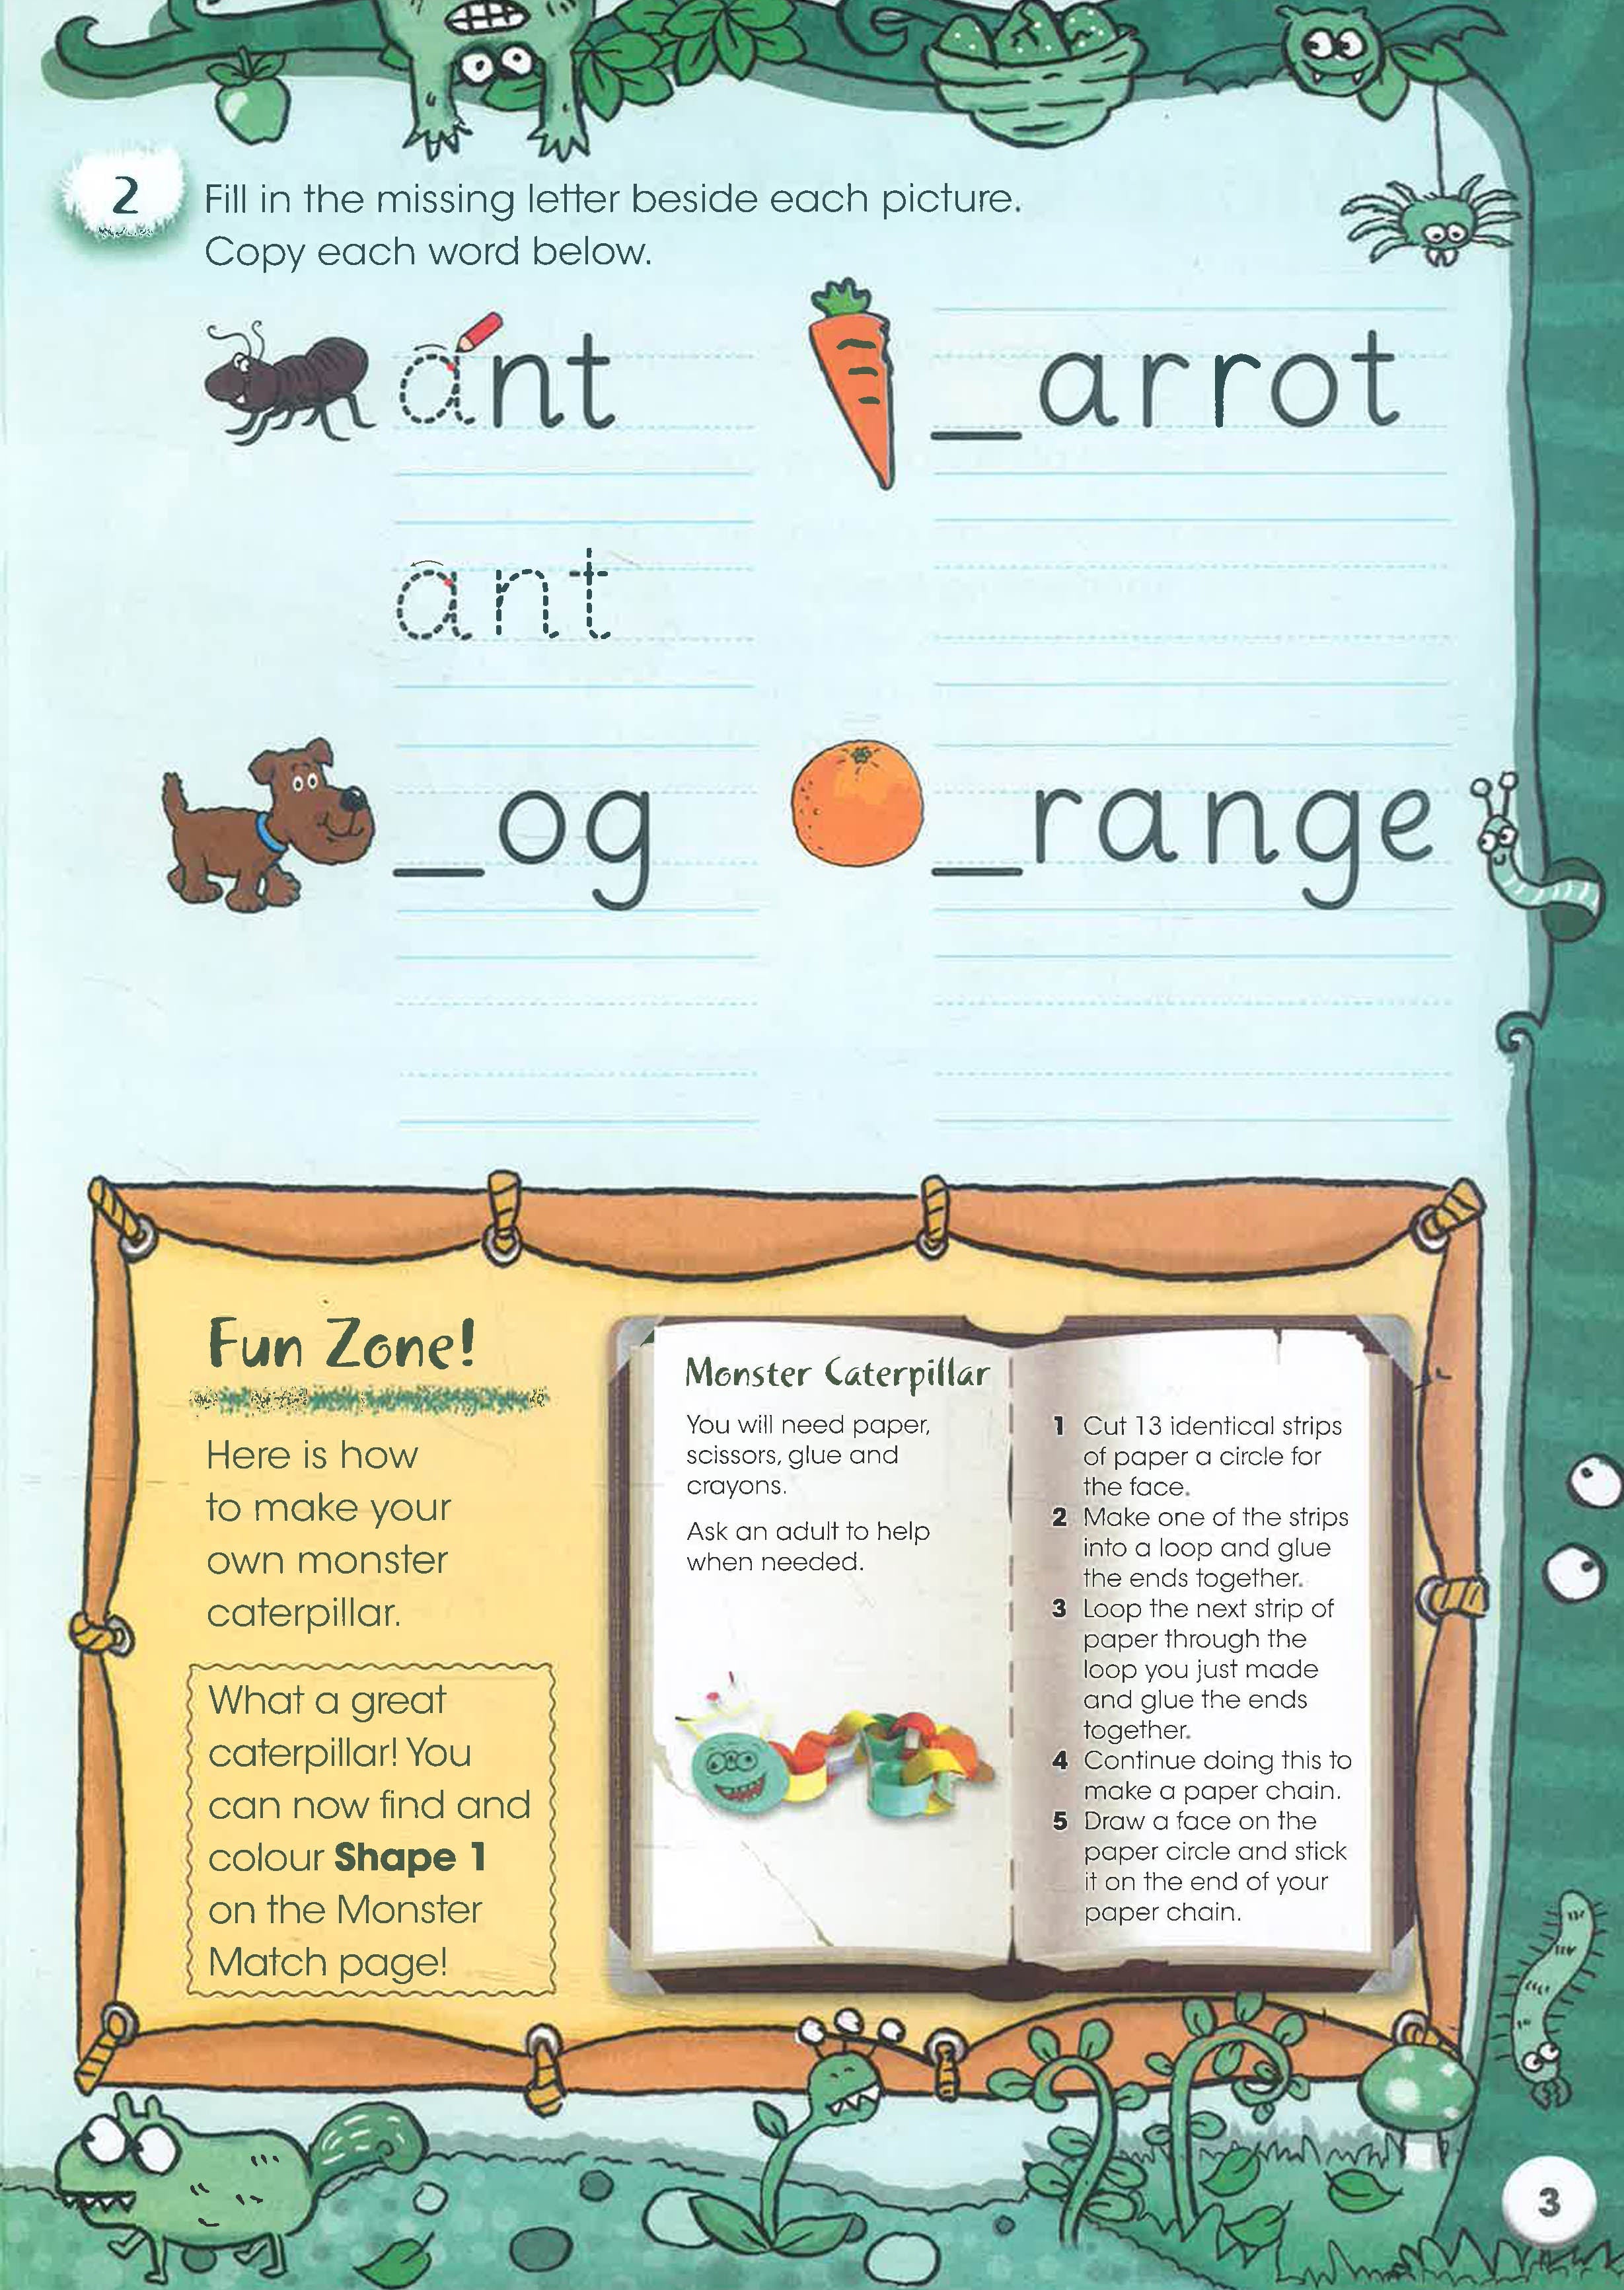 2
Fill in the missing letter beside each picture.
Copy each word below.
ant
_arrot
ant
_og
_range
Fun Zone!
Here is how
to make your
own monster
caterpillar.
What a great
caterpillar! You
can now find and
colour Shape 1
on the Monster
Match page!
Monster Caterpillar
You will need paper,
scissors, glue and
crayons.
Ask an adult to help
when needed.
1 Cut 13 identical strips
of paper a circle for
the face.
2 Make one of the strips
into a loop and glue
the ends together.
3 Loop the next strip of
paper through the
loop you just made
and glue the ends
together.
4 Continue doing this to
make a paper chain.
5 Draw a face on the
paper circle and stick
it on the end of your
paper chain.
3